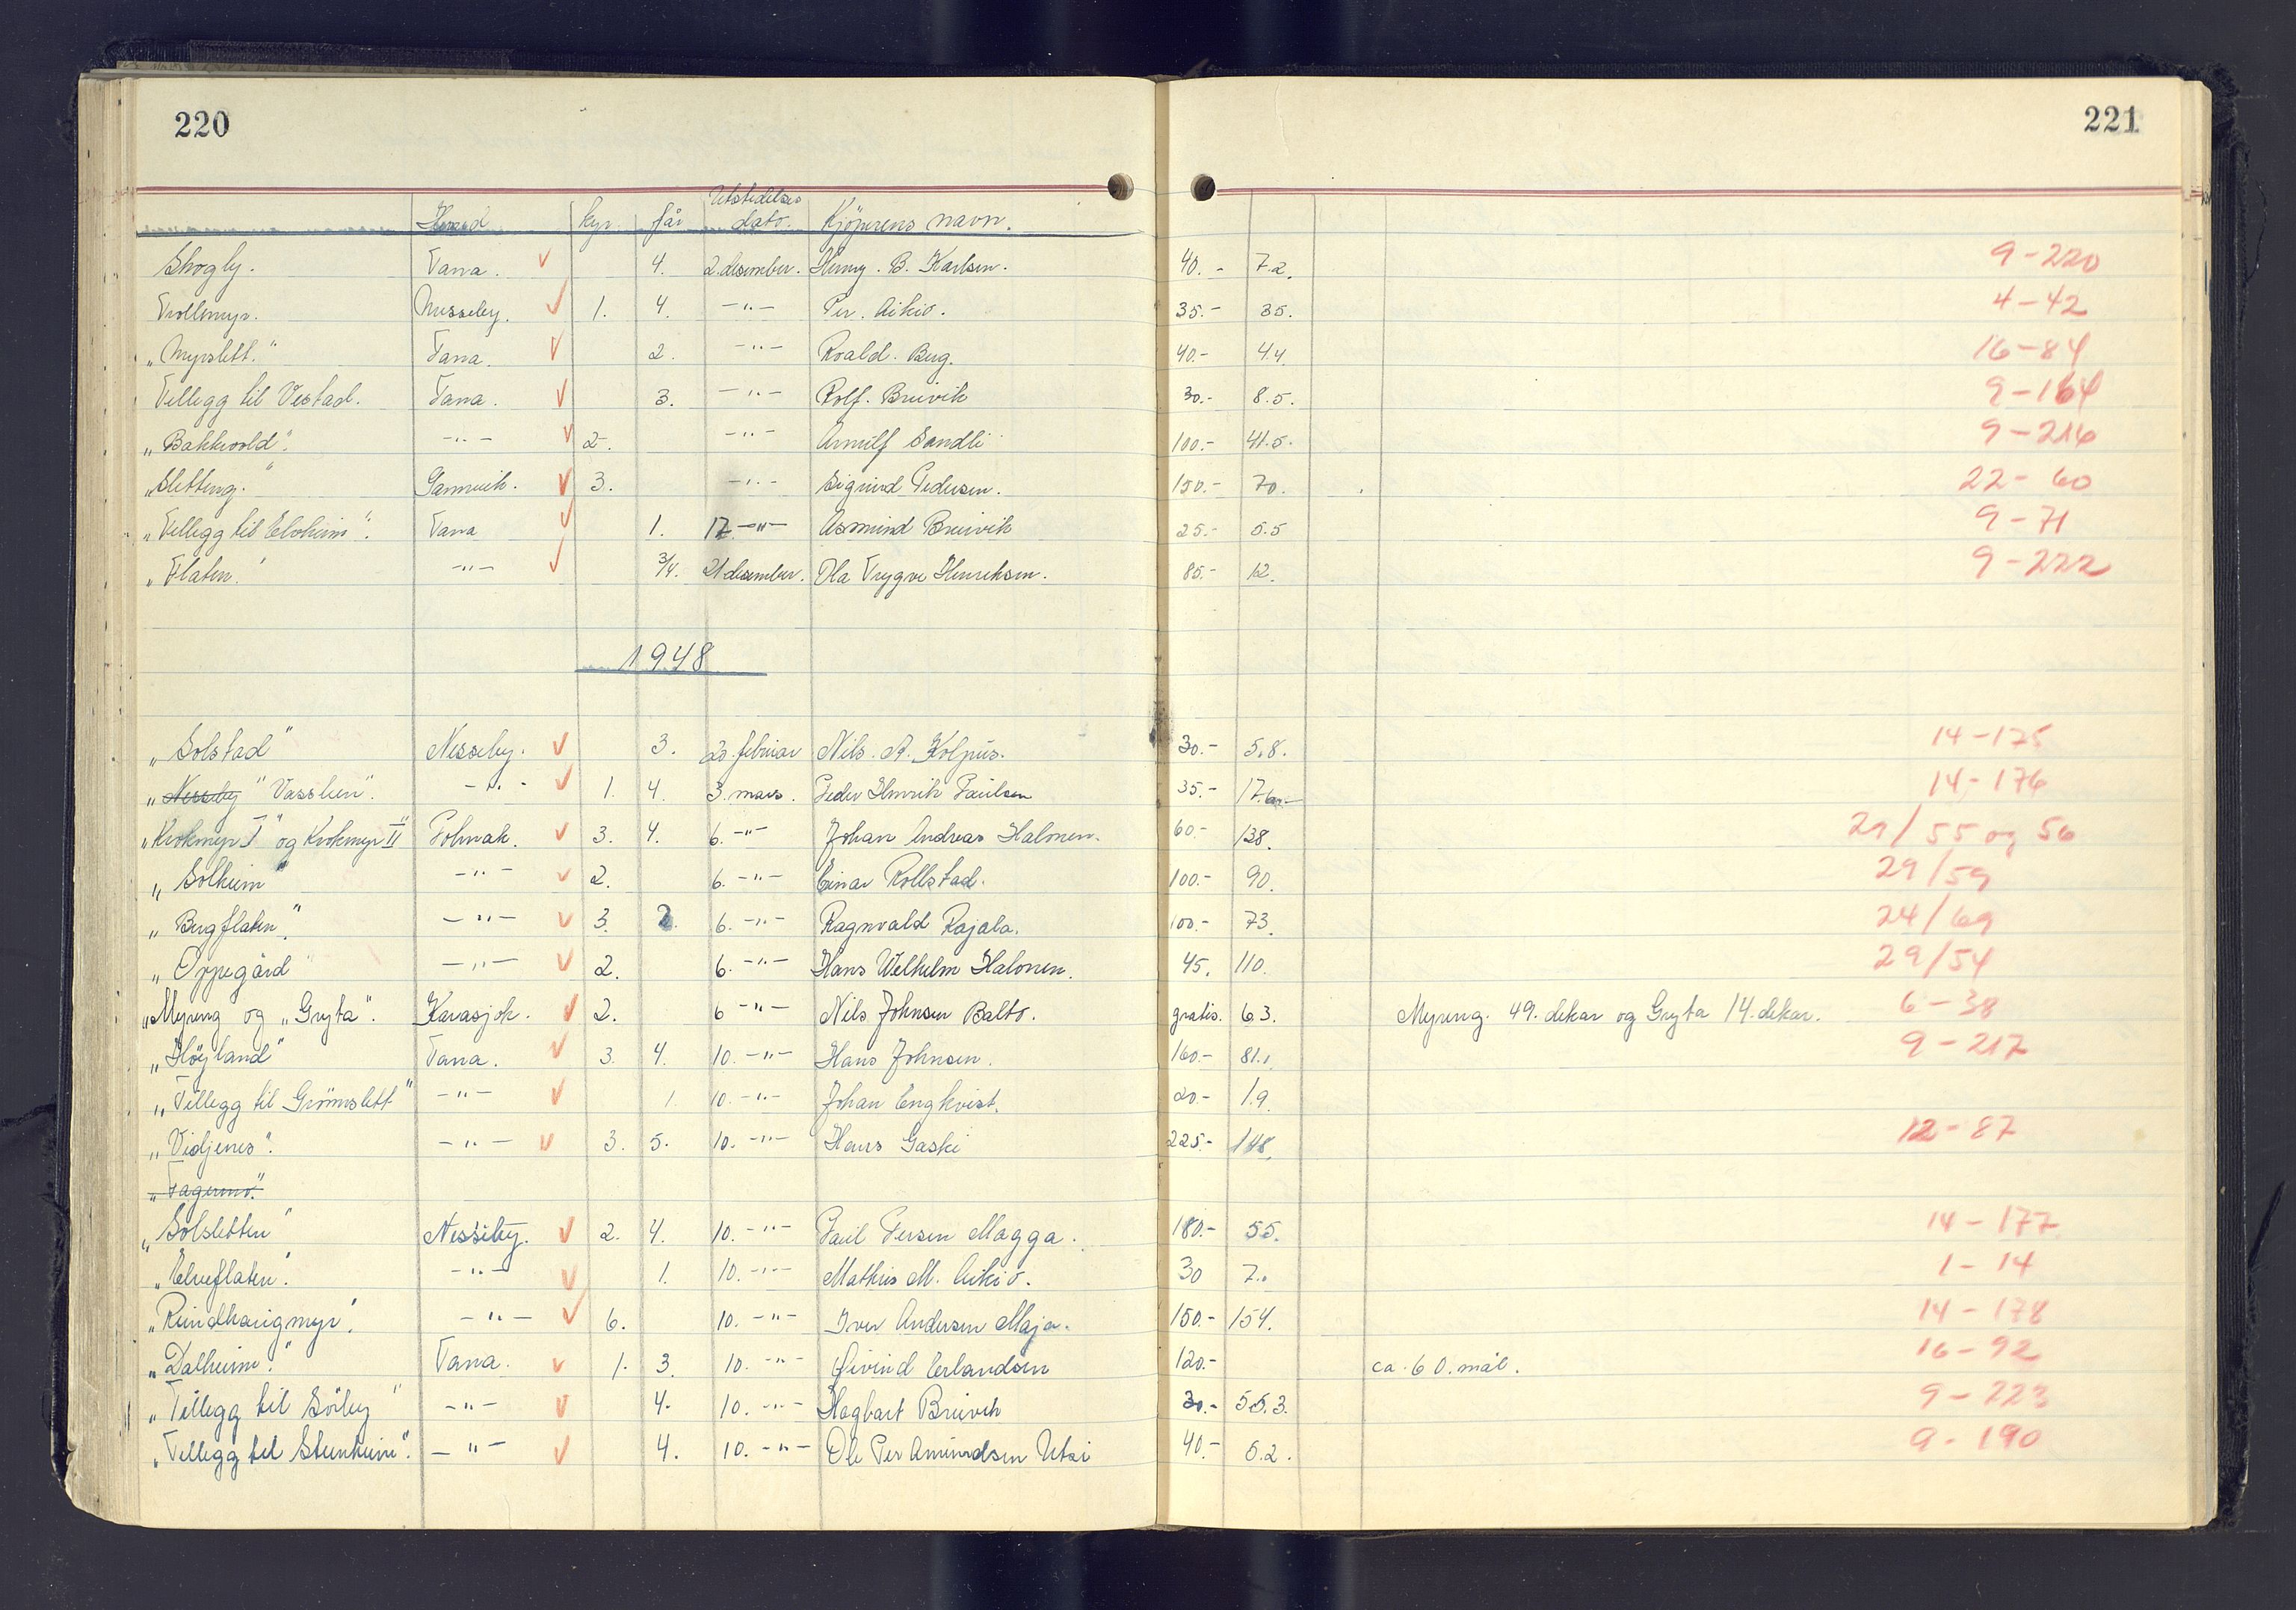 220
221
Herred kyr. får Utstedelses dato. Kjøperens navn.
Skogly. Tana. 4. 2. desember. Henry. B. Karlsen. 40.- 7.2. 9-220
Trollmyr. Nesseby. 1. 4. -"- Per. Aikio. 35.- 35. 4-42
„Myrslett." Tana. 2. -"- Roald. Berg. 40.- 4.4. 16-84
Tillegg til Vestad. Tana. 3. -"- Rolf. Breivik 30.- 8.5. 9-164
„Bakkvold". -"- 2. -"- Arnulf Sandli 100.- 41.5. 9-216
„Sletteng." Gamvik. 3. -"- Sigrund Pedersen. 150.- 70. 22-60
„Tillegg til Elvheim". Tana 1. 17. -"- Asmund Breivik 25.- 5.5 9-71
„Flaten." -"- 3/4. 21 desember. Ola Trygve Henriksen. 85.- 12. 9-222
1948
„Solstad" Nesseby. 3. 20. februar Nils. A. Kolpus. 30.- 5.8. 14-175
„Nesseby" Vasslien". -"- 1. 4. 3. mars. Peder Henrik Paulsen 35.- 14-176
„Krokmyr I" og Krokmyr II" Polmak. 3. 4. 6. -"- Johan Andreas Halonen. 60.- 138. 29/55 og 56
„Solheim" -"- 2. 6. -"- Einar Rollstad. 100.- 90. 29/59
„Bergflaten". -"- 3. 2. 6. -"- Ragnvald Rajala. 100.- 73. 24/69
„Oppegård" -"- 2. 6. -"- Hans Welhelm Halonen. 45. 110. 29/54
„Myreng og „Gryta". Karasjok. 2. 6 -"- Nils Johnsen Balto. gratis. 63. Myreng. 49. dekar og Gryta 14. dekar. 6-38
„Høyland" Tana. 3. 4. 10. -"- Hans Johnsen. 160.- 81. 9-217
„Tillegg til Grønnslett" -"- 1. 10. -"- Johan Engkvist. 20.- 1.9.
„Vidjenes". -"- 3. 5. 10. -"- Hans Gaski 225.- 148. 12-87
„Fagermo."
„Solsletten" Nesseby. 2. 4. 10. -"- Paul Persen Magga. 180.- 55. 14-177
„Elveflaten". -"- 1. 10. -"- Mathis M. Aikio. 30 7. 1-14
„Reindhaugmyr". -"- 6. 10. -"- Iver Andersen Maja. 150.- 154. 14-178
„Dalheim." Tana. 1. 3. 10. -"- Øivind Erlandsen 120.- ca. 60. mål. 16-92
„Tillegg til Sörby" -"- 4. 10. -"- Hagbart Breivik 30.- 55.3. 9-223
„Tillegg til Steinheim". -"- 4. 10. -"- Ole Per Amundsen Utsi 40.- 5.2. 9-190